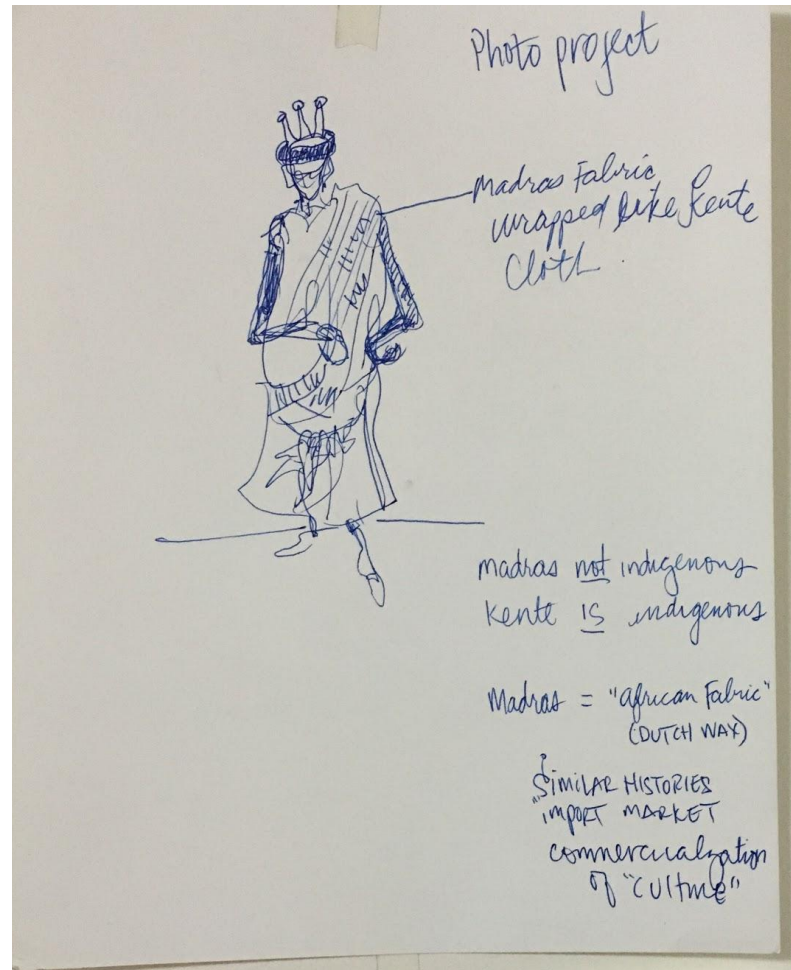 Photo project
Madras Fabric
wrapped like Kente
Cloth.
madras not indigenous
Kente IS indigenous
Madras = "African Fabric"
(DUTCH WAX)
SIMILAR HISTORIES
"IMPORT MARKET
commercualzation
of "CUlture"